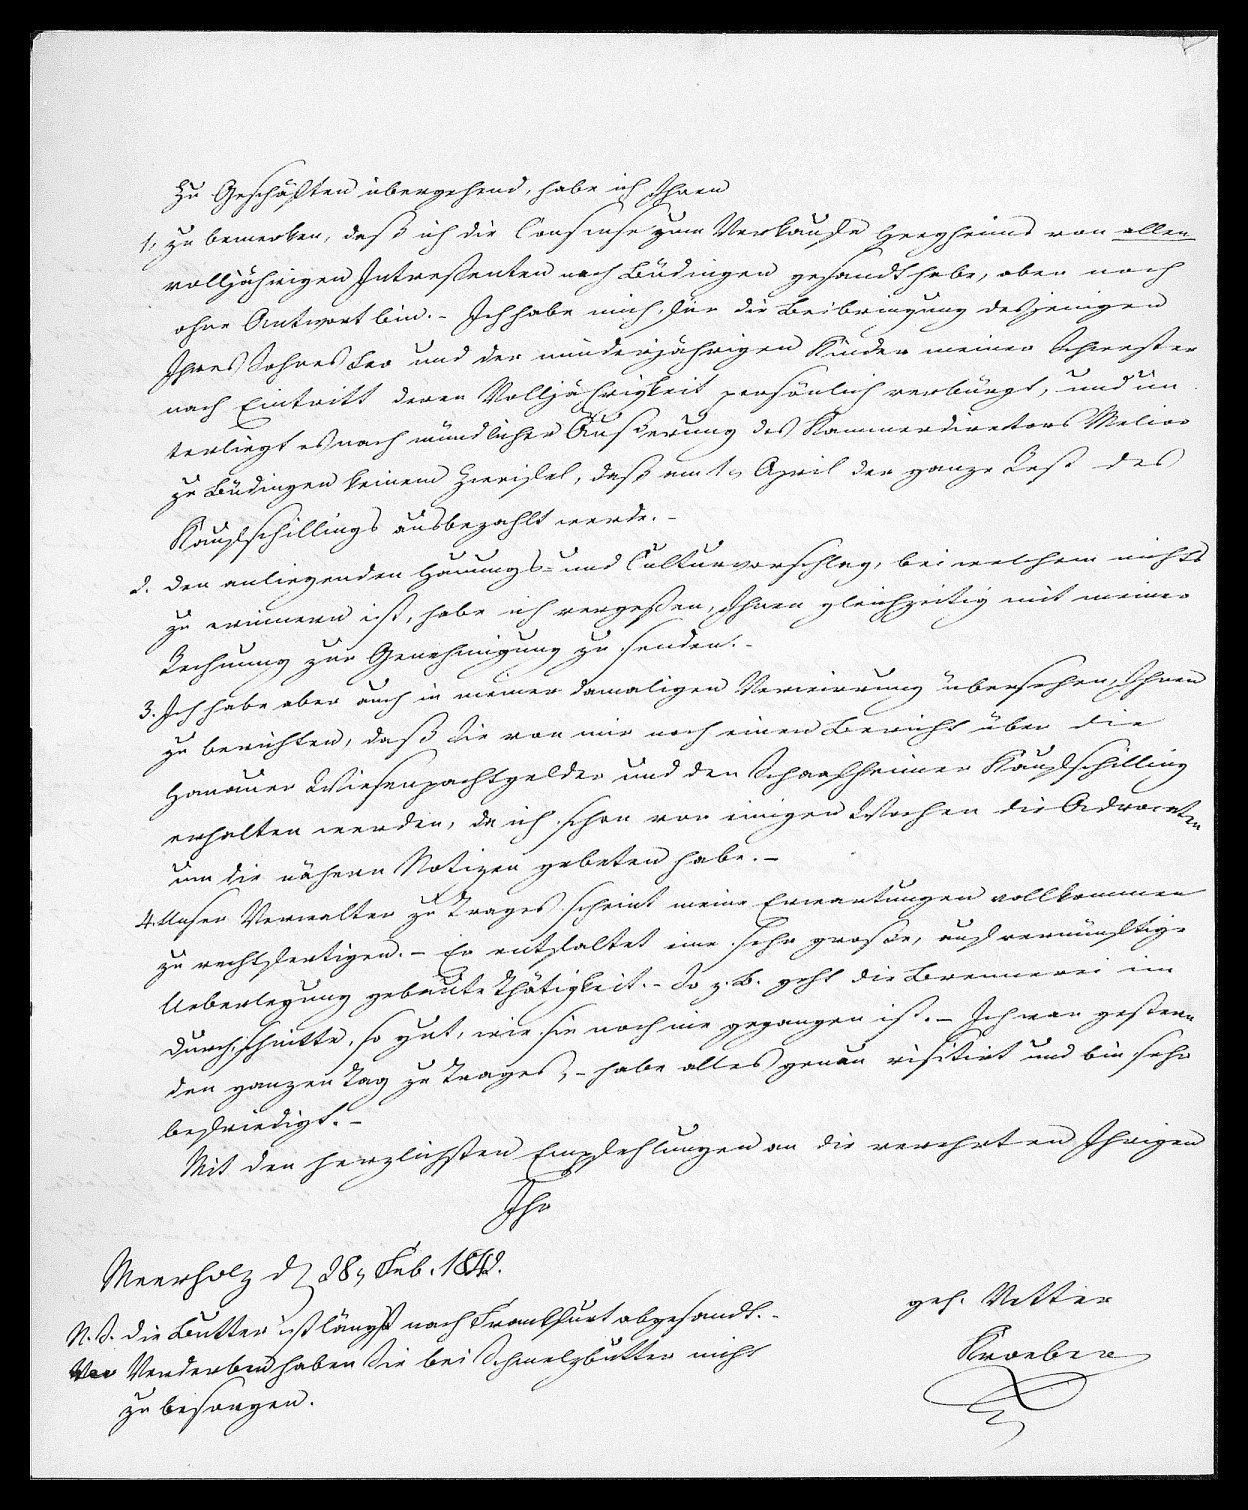 Zu Geschäften übergehend, habe ich Ihnen
1, zu bemerken, daß ich die Consense zum Verkaufe Heegheims von allen
volljährigen Intressenten nach Büdingen gesandt habe, aber noch
ohne Antwort bin. - Ich habe mich, für die Beibringung desjenigen
Ihres Sohnes Leo und der minderjährigen Kinder meiner Schwester
nach Eintritt deren Volljährigkeit persönlich verbürgt, und un
terliegt es nach mündlicher Äußerung des Kammerdirektors Melior
zu Büdingen keinem Zweifel, daß am 1, April der ganze Rest des
Kaufschillings ausbezahlt werde. -
2. den anliegenden Hauungs- und Culturvorschlag, bei welchem nichts
zu erinnern ist, habe ich vergessen, Ihnen gleichzeitig mit meiner
Rechnung zur Genehmigung zu senden. -
3. Ich habe aber auch in meiner damaligen Verwirrung übersehen, Ihnen
zu berichten, daß Sie von mir noch einen Bericht über die
Hanauer Wiesenpachtgelder und den Schaafheimer Kaufschilling
erhalten werden, da ich schon vor einigen Wochen die Advocaten
um die nähern Notizen gebeten habe. -
4. Unser Verwalter zu Trages scheint meine Erwartungen vollkommen
zu rechtfertigen. - Er entfaltet eine sehr große, auf vernünftige
Ueberlegung gebaute Thätigkeit. - So z. B. geht die Brennerei im
Durchschnitte, so gut, wie sie noch nie gegangen ist. - Ich war gestern
den ganzen Tag zu Trages, - habe alles genau visitirt und bin sehr
befriedigt. -
Mit den herzlichsten Empfehlungen an die verehrten Ihrigen
Ihr
Meerholz d 28, Feb. 1842.
geh. Vetter
N. S. die Butter ist längst nach Frankfurt abgesandt. -
Kroeber
Verderben haben Sie bei Schmelzbutter nicht
zu besorgen.